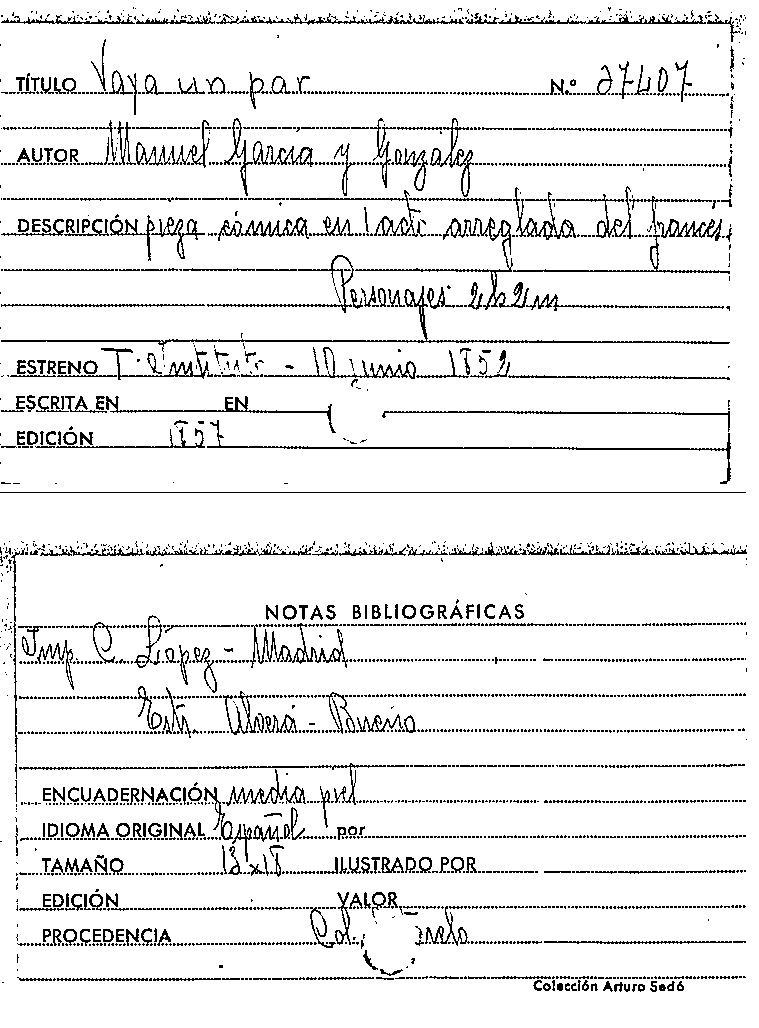 TÍTULO Vaya un par N.º 27407
AUTOR Manuel García y González
DESCRIPCIÓN pieza cómica en 1 acto arreglada del francés.
Personajes 2h 2m
ESTRENO T. Instituto - 10 junio 1852
ESCRITA EN EN
EDICIÓN 1857
NOTAS BIBLIOGRÁFICAS
Imp. C. López - Madrid
Estr. Alverá - Bueno
ENCUADERNACIÓN media piel
IDIOMA ORIGINAL Español por
TAMAÑO 13x18 ILUSTRADO POR
EDICIÓN VALOR
PROCEDENCIA Col.
Colección Arturo Sedó